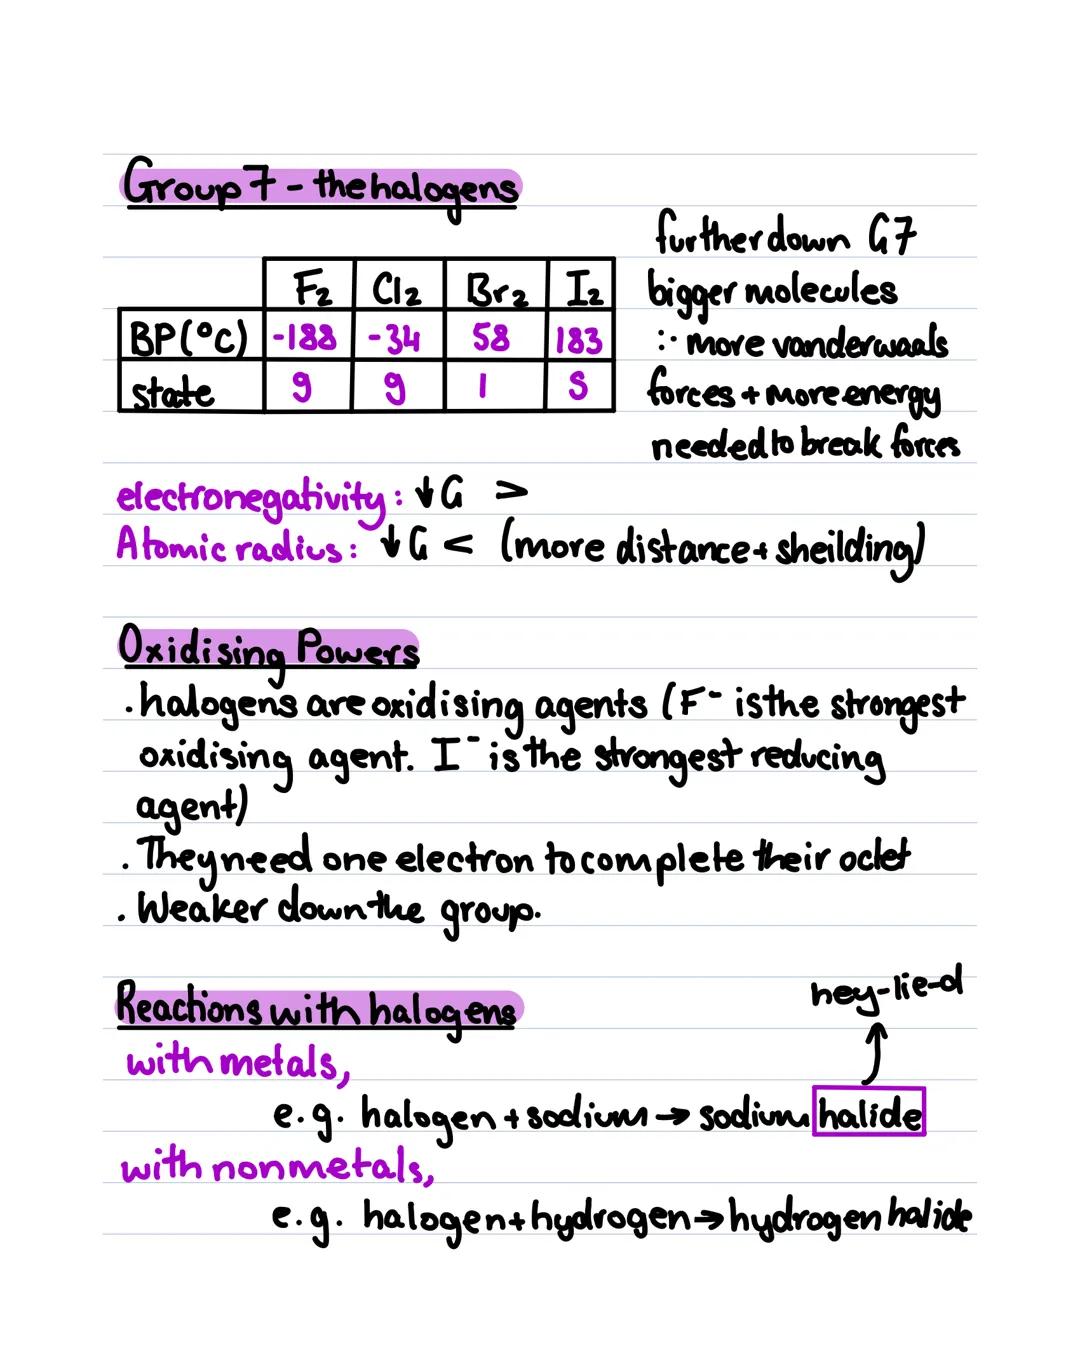 Group 7 - the halogens
F₂ Cl₂ Br₂ I₂
BP(°C) -188 -34 58 183
state g g l s
further down G7
bigger molecules
∴ more van der waals
forces + more energy
needed to break forces
electronegativity: ↓G >
Atomic radius: ↓G < (more distance + sheilding)
Oxidising Powers
. halogens are oxidising agents (F⁻ is the strongest
oxidising agent. I⁻ is the strongest reducing
agent)
. They need one electron to complete their octet
. Weaker down the group.
Reactions with halogens
hey-lie-d
with metals,
e.g. halogen + sodium → sodium halide
with nonmetals,
e.g. halogen + hydrogen → hydrogen halide